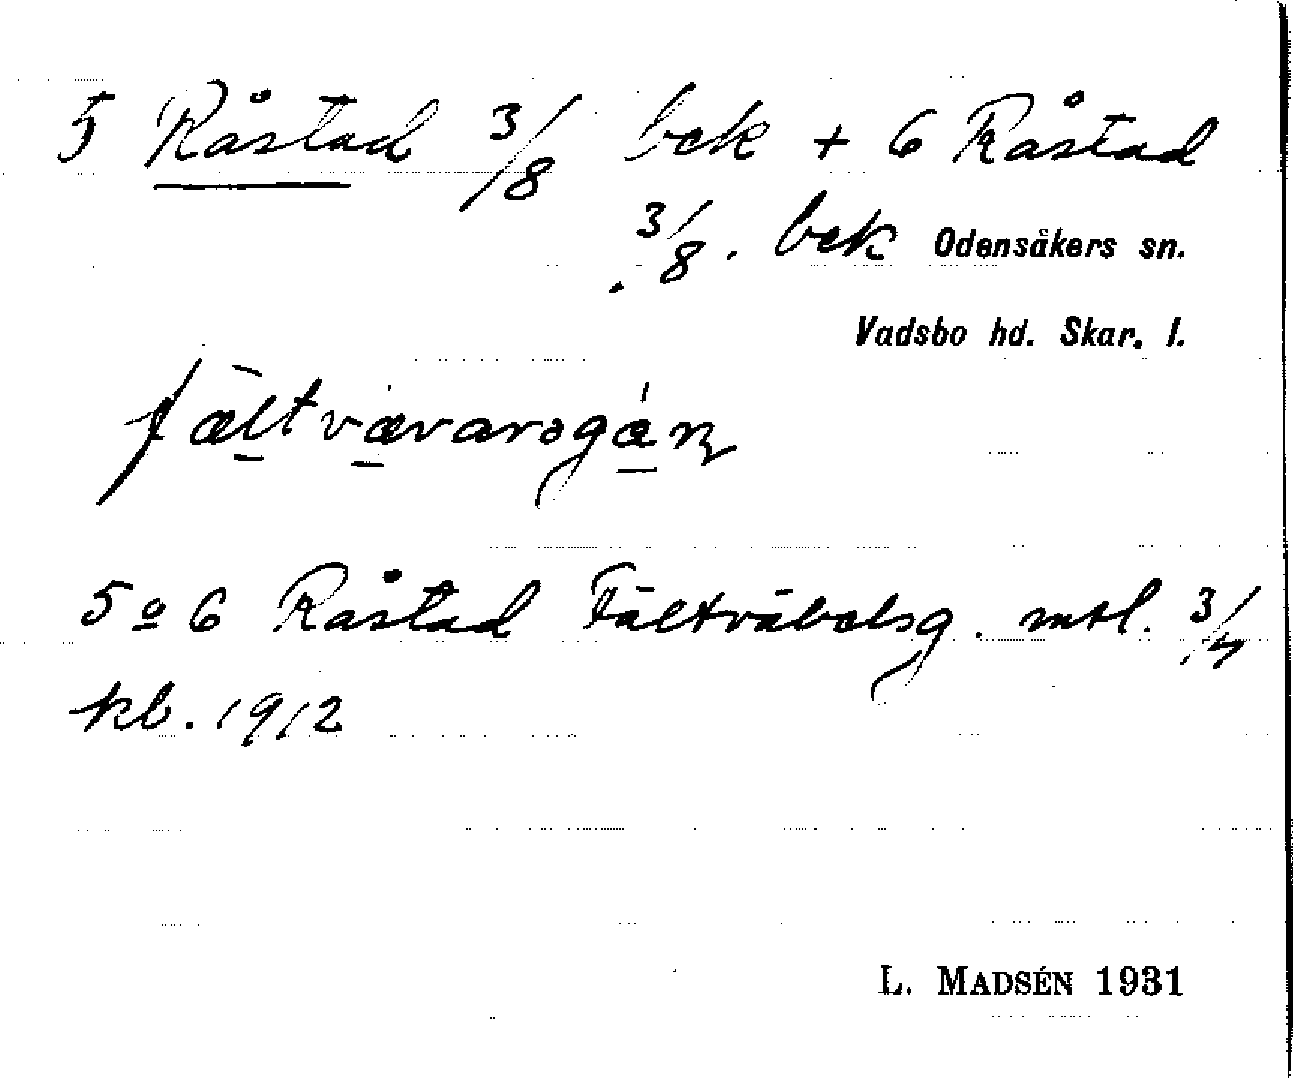 5 Råstad 3/8 bek + 6 Råstad
3/8. bek Odensåkers sn.
Vadsbo hd. Skar. l.
fæltvævarsgáɳ
5 o 6 Råstad Fältväbelsg. mtl. 3/4
kb. 1912
L. MADSÉN 1931